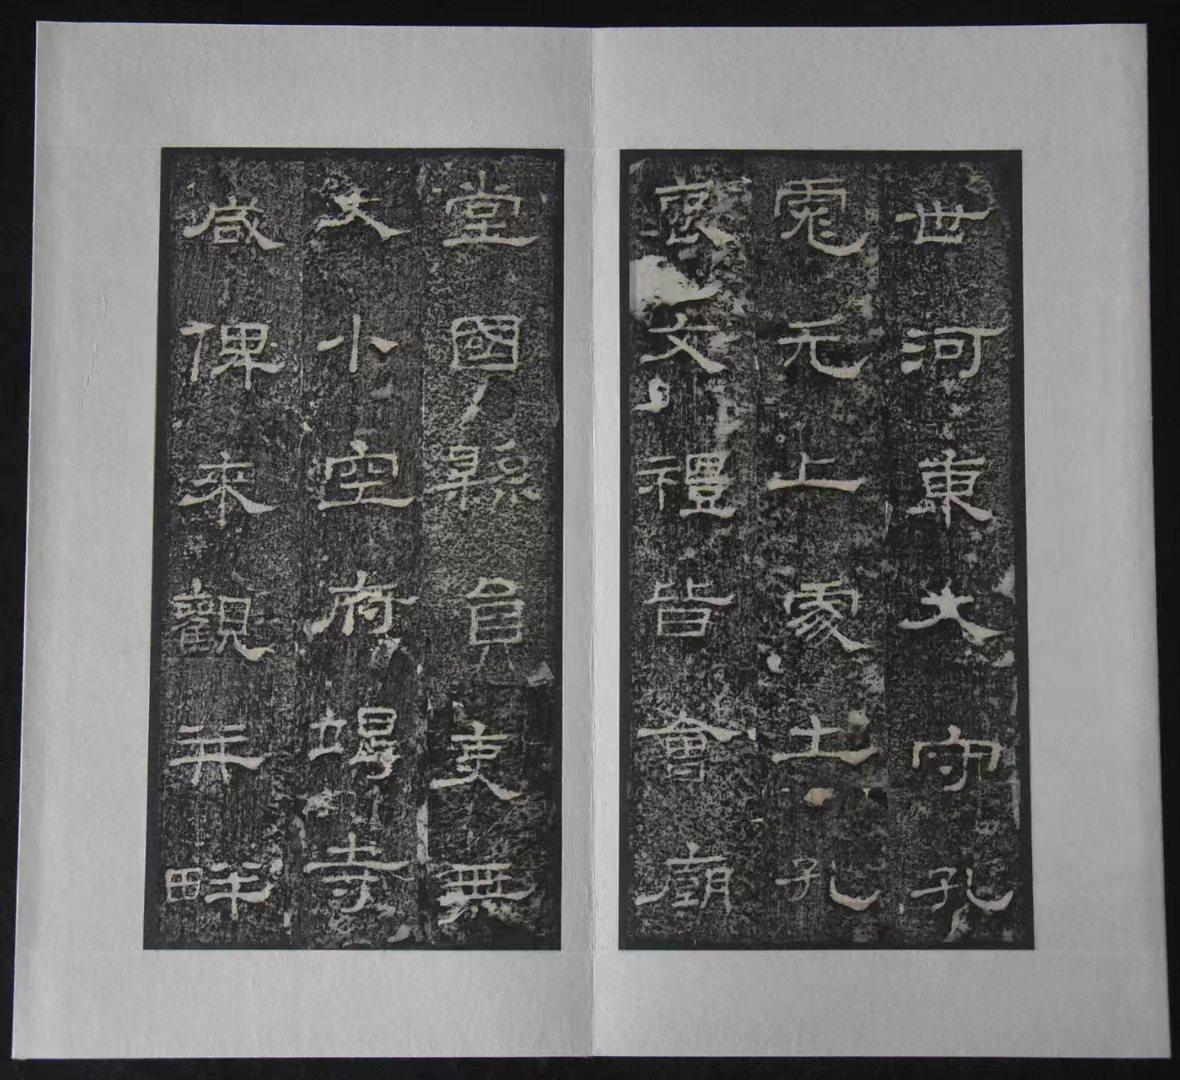 世河東大守孔
彪元上處土孔
褒文禮皆會廟
堂國縣員吏無
大小空府竭寺
咸俾來觀并畔